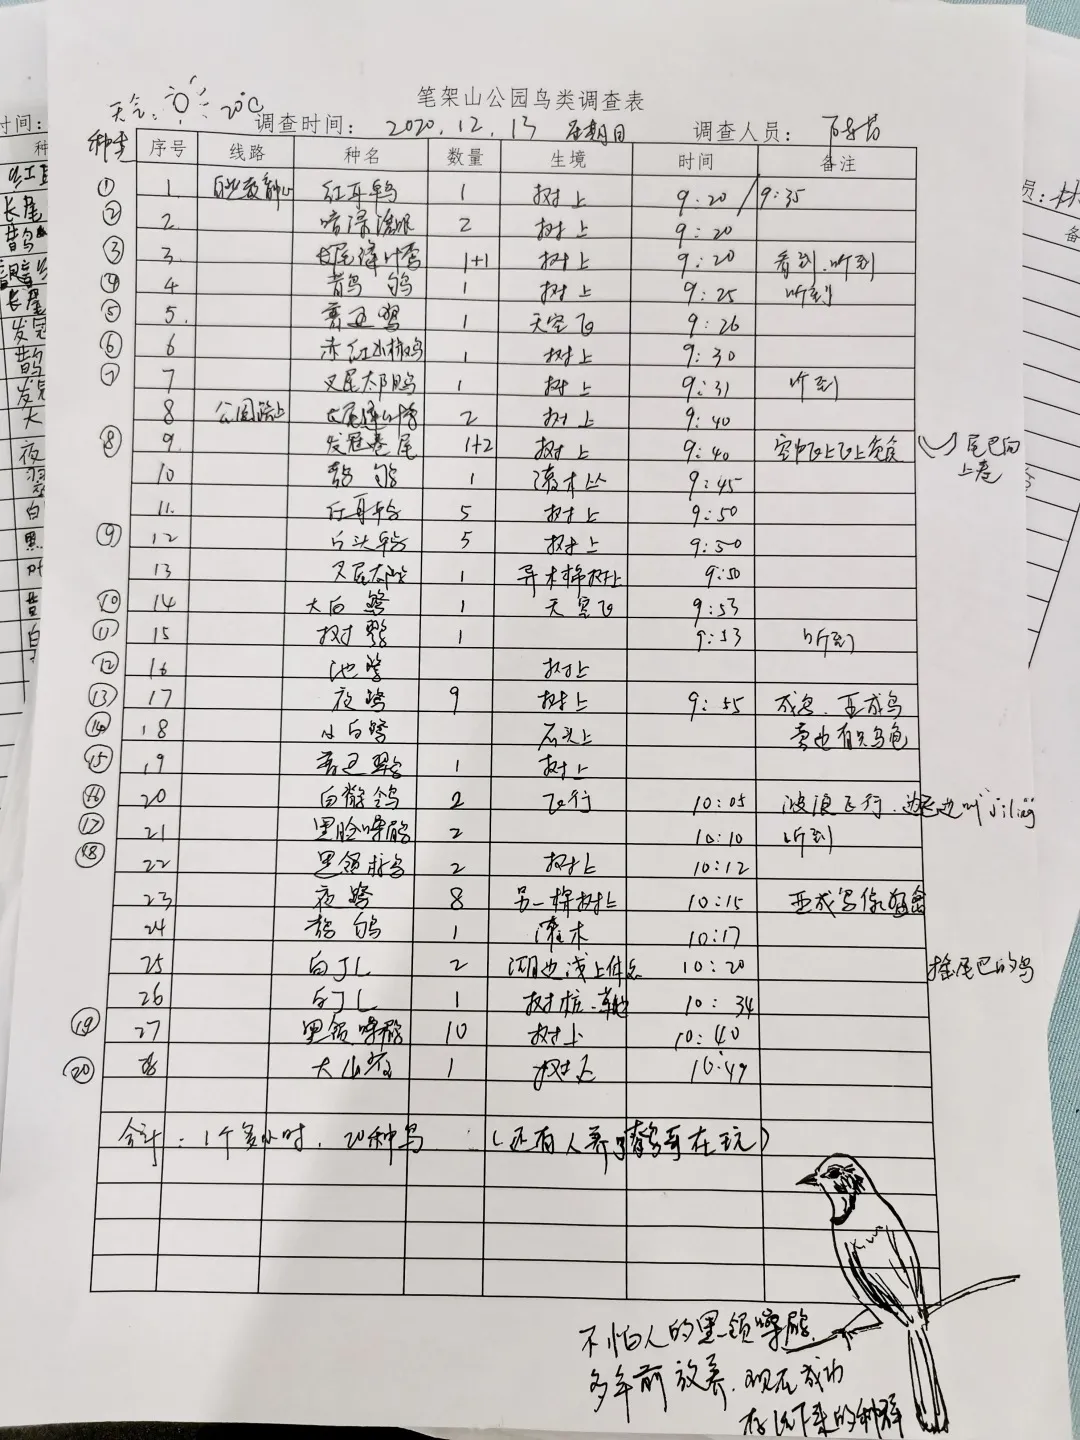 天气: 20℃
笔架山公园鸟类调查表
调查时间: 2020.12.13 星期日 调查人员:
种类 序号 线路 种名 数量 生境 时间 备注
① 1 自然教育中心 红耳鹎 1 树上 9:20/9:35
② 2 暗绿绣眼 2 树上 9:20
③ 3 长尾缝叶莺 1+1 树上 9:20 看到、听到
④ 4 鹊鸲 1 树上 9:25 听到
⑤ 5. 普通鵟 1 天空飞 9:26
⑥ 6 赤红山椒鸟 1 树上 9:30
⑦ 7 叉尾太阳鸟 1 树上 9:31 听到
8 公园路上 长尾缝叶莺 2 树上 9:40
⑧ 9. 发冠卷尾 1+2 树上 9:40 空中飞上飞上 尾巴向
上卷
10 鹊鸲 1 灌木丛 9:45
11. 红耳鹎 5 树上 9:50
⑨ 12 白头鹎 5 树上 9:50
13 叉尾太阳 1 异木棉树上 9:50
⑩ 14 大白鹭 1 天空飞 9:53
⑪ 15 树鹨 1 9:53 听到
⑫ 16 池鹭 树上
⑬ 17 夜鹭 9 树上 9:55 成鸟、亚成鸟
⑭ 18 小白鹭 石头上
⑮ 19 普通翠鸟 1 树上
⑯ 20 白鹡鸰 2 飞行 10:05 波浪飞行、边飞边叫"jiling
⑰ 21 黑脸噪鹛 2 10:10 听到
⑱ 22 黑领椋鸟 2 树上 10:12
23 夜鹭 8 另一棵树上 10:15 亚成鸟像猛禽
24 鹊鸲 1 灌木 10:17
25 白JL 2 湖边浅上休息 10:20 摇尾巴的鸟
26 白JL 1 树桩、草地 10:34
⑲ 27 黑领噪鹛 10 树上 10:40
⑳ 28 大山雀 1 树上 10:49
合计: 1个多小时, 20种鸟 (还有人养了鹩哥在玩)
不怕人的黑领噪鹛,
多年前放养,现在成功
存活下来的种群